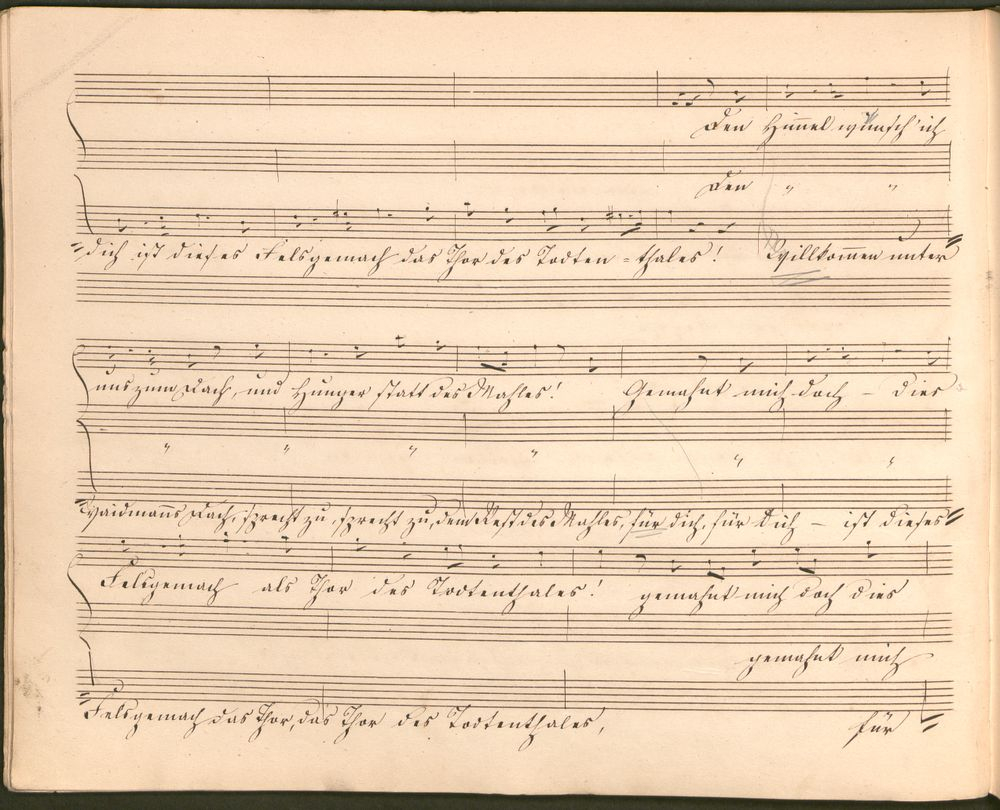 Den Himel wünsch' ich
Den " "
dich ist dieses Felsgemach das Thor des Todten=thales! Willkomen unter
uns zum Dach, und Hunger statt des Mahles! Gemahnt mich doch – dies
" " " " " "
Waidmanns Dach, sprecht zu, sprecht zu, dem Rest des Mahles, für dich, für dich – ist dieses
Felsgemach als Thor des Todtenthales! gemahnt mich doch dies
gemahnt mich
Felsgemach das Thor, das Thor des Todtenthales, für